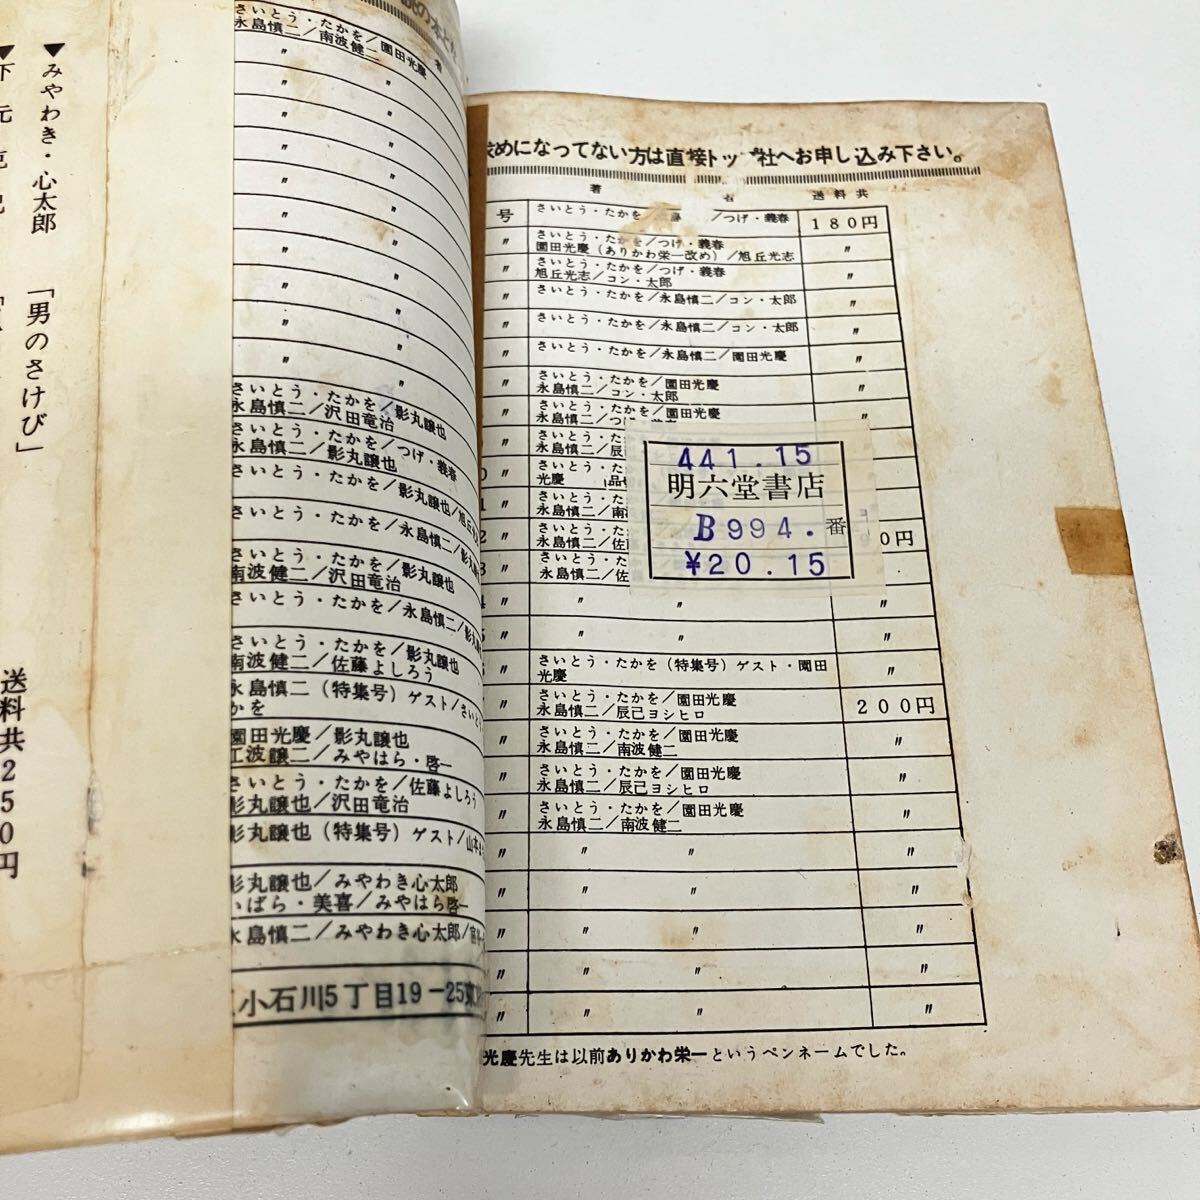 ▼みやわき・心太郎
「男のさけび」
送料共250円
者
さいとう・たかを/園田光慶
永島慎二/南波健二
〃
〃
〃
〃
〃
〃
〃
〃
〃
さいとう・たかを/影丸譲也
永島慎二/沢田竜治
さいとう・たかを/つげ・義春
永島慎二/影丸譲也
さいとう・たかを/影丸譲也/旭丘
さいとう・たかを/永島慎二/影丸
さいとう・たかを/影丸譲也
南波健二/沢田竜治
さいとう・たかを/永島慎二/影丸
さいとう・たかを/影丸譲也
南波健二/佐藤よしろう
永島慎二(特集号)ゲスト/さいとう
かを
園田光慶/影丸譲也
江波譲二/みやはら・啓一
さいとう・たかを/佐藤よしろう
影丸譲也/沢田竜治
影丸譲也(特集号)ゲスト/山本
影丸譲也/みやわき心太郎
いばら・美喜/みやはら啓一
永島慎二/みやわき心太郎/
小石川5丁目19-25
求めになってない方は直接トップ社へお申し込み下さい。
著 者 送料共
号 さいとう・たかを/ /つげ・義春 180円
〃 さいとう・たかを/つげ・義春
園田光慶(ありかわ栄一改め)/旭丘光志 〃
〃 さいとう・たかを/つげ・義春
旭丘光志/コン・太郎 〃
〃 さいとう・たかを/永島慎二/コン・太郎 〃
〃 さいとう・たかを/永島慎二/コン・太郎 〃
〃 さいとう・たかを/永島慎二/園田光慶 〃
〃 さいとう・たかを/園田光慶
永島慎二/コン・太郎 〃
〃 さいとう・たかを/園田光慶
永島慎二/つげ・義春 〃
〃 さいとう・た
永島慎二/辰
0 〃 さいとう・た
光慶 品切
1 〃 さいとう・た
永島慎二/南
2 〃 さいとう・た
永島慎二/佐 0円
3 〃 さいとう・た
永島慎二/佐
4 〃 〃 〃 〃
5 〃 〃 〃 〃
〃 さいとう・たかを(特集号)ゲスト・園田
光慶 〃
〃 さいとう・たかを/園田光慶
永島慎二/辰己ヨシヒロ 200円
〃 さいとう・たかを/園田光慶
永島慎二/南波健二 〃
〃 さいとう・たかを/園田光慶
永島慎二/辰己ヨシヒロ 〃
〃 さいとう・たかを/園田光慶
永島慎二/南波健二 〃
〃 〃 〃 〃
〃 〃 〃 〃
〃 〃 〃 〃
〃 〃 〃 〃
〃 〃 〃 〃
441.15
明六堂書店
B994.番
¥20.15
光慶先生は以前ありかわ栄一というペンネームでした。